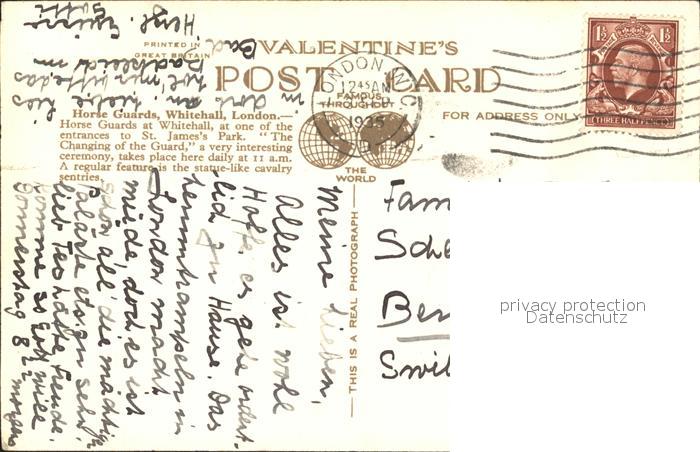 PRINTED IN
GREAT BRITAIN
VALENTINE'S
POST CARD
FAMOUS
THROUGHOUT
THE
WORLD
FOR ADDRESS ONLY
LONDON W.C.
12 45 AM
1935
1½ 1½
THREE HALFPENCE
Horse Guards, Whitehall, London.—
Horse Guards at Whitehall, at one of the
entrances to St. James's Park. "The
Changing of the Guard," a very interesting
ceremony, takes place here daily at 11 a.m.
A regular feature is the statue-like cavalry
sentries.
THIS IS A REAL PHOTOGRAPH
Meine Lieben,
Alles ist wohl
Hoffe es gehe
zu Hause. Das
herumtrampeln in
London macht
müde, doch es ist
schön all' die mächtigen
Paläste etc. zu sehn.
komme so Gott will
Donnerstag 8 morgens
in
Bad
Herzl.
Fam
Sch
Ber
Swit
privacy protection
Datenschutz